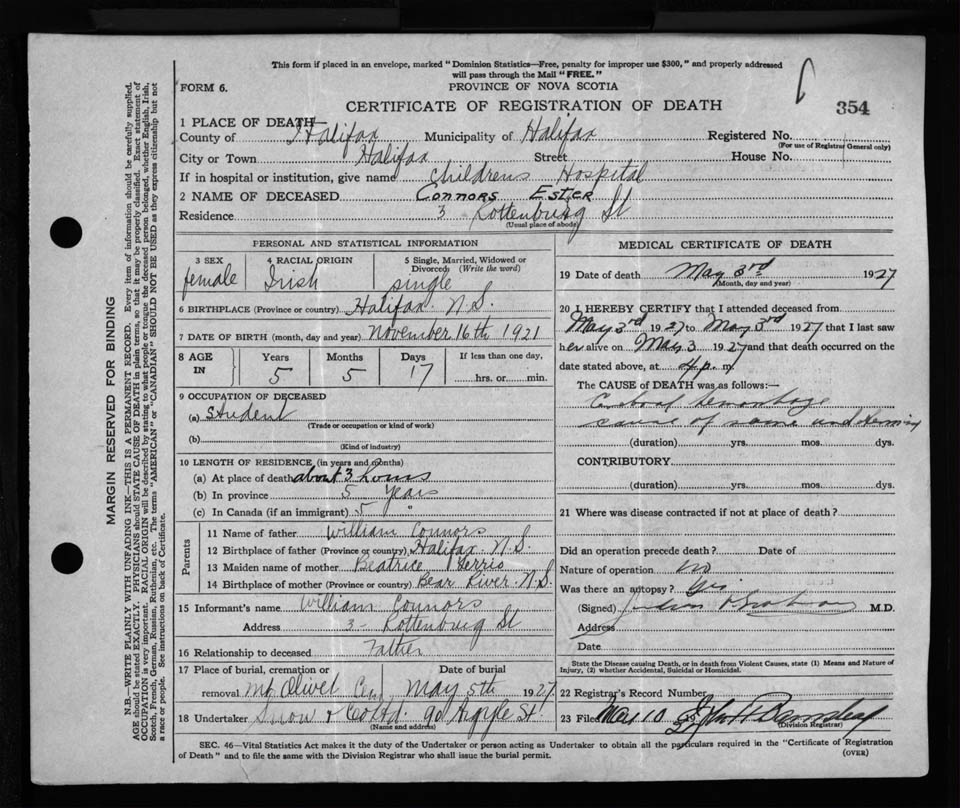 This form if placed in an envelope, marked "Dominion Statistics—Free, penalty for improper use $300," and properly addressed
will pass through the Mail "FREE."
FORM 6.
PROVINCE OF NOVA SCOTIA
CERTIFICATE OF REGISTRATION OF DEATH
354
1 PLACE OF DEATH
County of Halifax Municipality of Halifax Registered No.
(For use of Registrar General only)
City or Town Halifax Street House No.
If in hospital or institution, give name Childrens Hospital
2 NAME OF DECEASED Connors Ester
Residence 3 Rottenburg St
(Usual place of abode)
PERSONAL AND STATISTICAL INFORMATION
3 SEX 4 RACIAL ORIGIN 5 Single, Married, Widowed or
Divorced (Write the word)
female Irish single
6 BIRTHPLACE (Province or country) Halifax N.S.
7 DATE OF BIRTH (month, day and year) November 16th 1921
8 AGE IN Years Months Days If less than one day,
5 5 17 hrs. or min.
9 OCCUPATION OF DECEASED
(a) Student
(Trade or occupation or kind of work)
(b)
(Kind of industry)
10 LENGTH OF RESIDENCE (in years and months)
(a) At place of death about 3 hours
(b) In province 5 Years
(c) In Canada (if an immigrant) 5 "
Parents
11 Name of father William Connors
12 Birthplace of father (Province or country) Halifax N.S.
13 Maiden name of mother Beatrice
14 Birthplace of mother (Province or country) Bear River N.S.
15 Informant's name William Connors
Address 3 - Rottenburg St
16 Relationship to deceased Father
17 Place of burial, cremation or Date of burial
removal Mt Olivet Cem May 5th 1927
18 Undertaker Snow & Co Ltd. 90 Argyle St.
(Name and address)
MEDICAL CERTIFICATE OF DEATH
19 Date of death May 3rd 1927
(Month, day and year)
20 I HEREBY CERTIFY that I attended deceased from
May 3rd 1927 to May 3rd 1927 that I last saw
her alive on May 3 1927 and that death occurred on the
date stated above, at 4 p. m.
The CAUSE of DEATH was as follows:—
cause of
(duration) yrs. mos. dys.
CONTRIBUTORY
(duration) yrs. mos. dys.
21 Where was disease contracted if not at place of death?
Did an operation precede death? Date of
Nature of operation no
Was there an autopsy? Yes
(Signed) M.D.
Address
Date
State the Disease causing Death, or in death from Violent Causes, state (1) Means and Nature of
Injury, (2) whether Accidental, Suicidal or Homicidal.
22 Registrar's Record Number
23 Filed May 10 19
(Division Registrar)
SEC. 46—Vital Statistics Act makes it the duty of the Undertaker or person acting as Undertaker to obtain all the particulars required in the "Certificate of Registration
of Death" and to file the same with the Division Registrar who shall issue the burial permit.
(OVER)
MARGIN RESERVED FOR BINDING
N.B.—WRITE PLAINLY WITH UNFADING INK—THIS IS A PERMANENT RECORD. Every item of information should be carefully supplied.
AGE should be stated EXACTLY. PHYSICIANS should STATE CAUSE OF DEATH in plain terms, so that it may be properly classified. Exact statement of
OCCUPATION is very important. RACIAL ORIGIN will be described by stating to what people or tongue the deceased person belonged, whether English, Irish,
Scotch, French, German, Russian, Ruthenian, etc. The terms "AMERICAN" or "CANADIAN" SHOULD NOT BE USED as they express citizenship but not
a race or people. See instructions on back of Certificate.